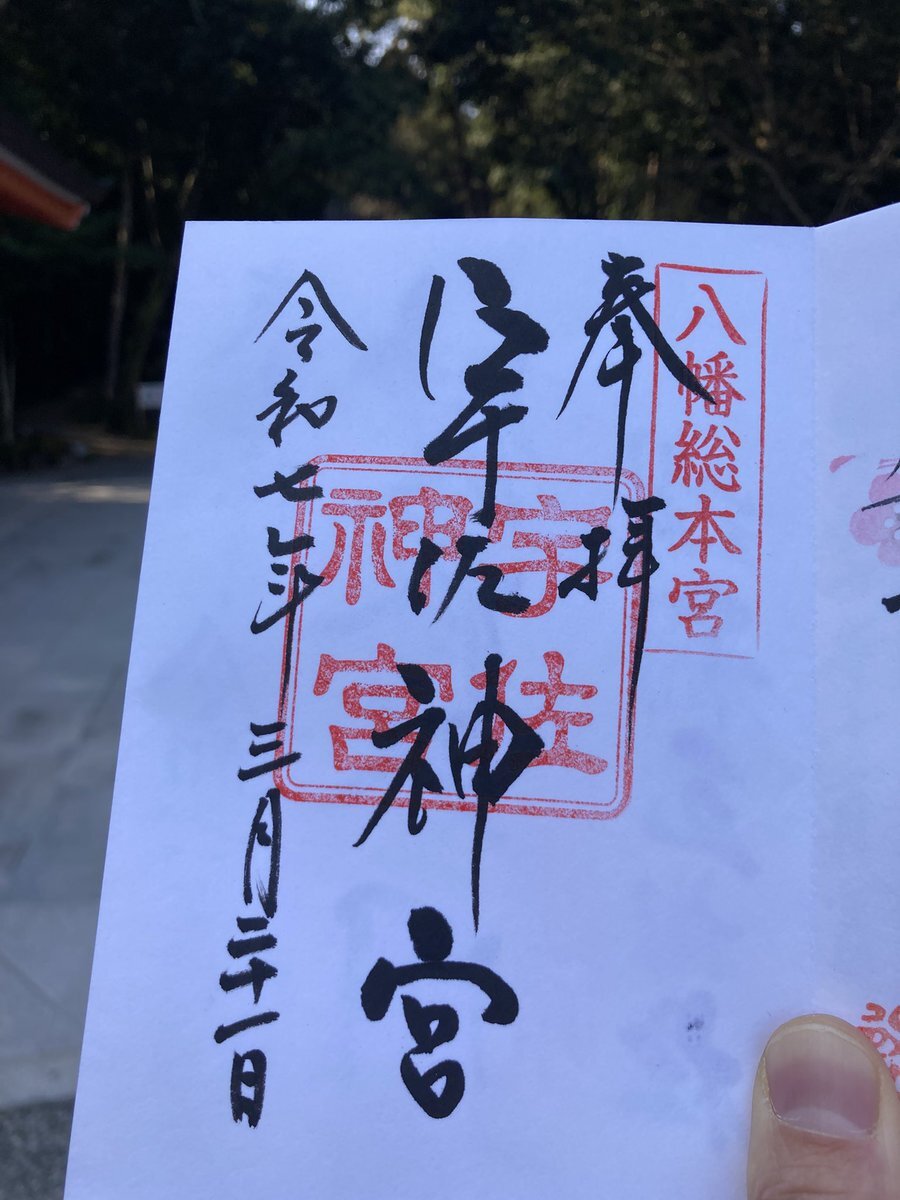 八幡総本宮
奉拝
宇佐神宮
宇佐
神宮
令和七年三月二十一日